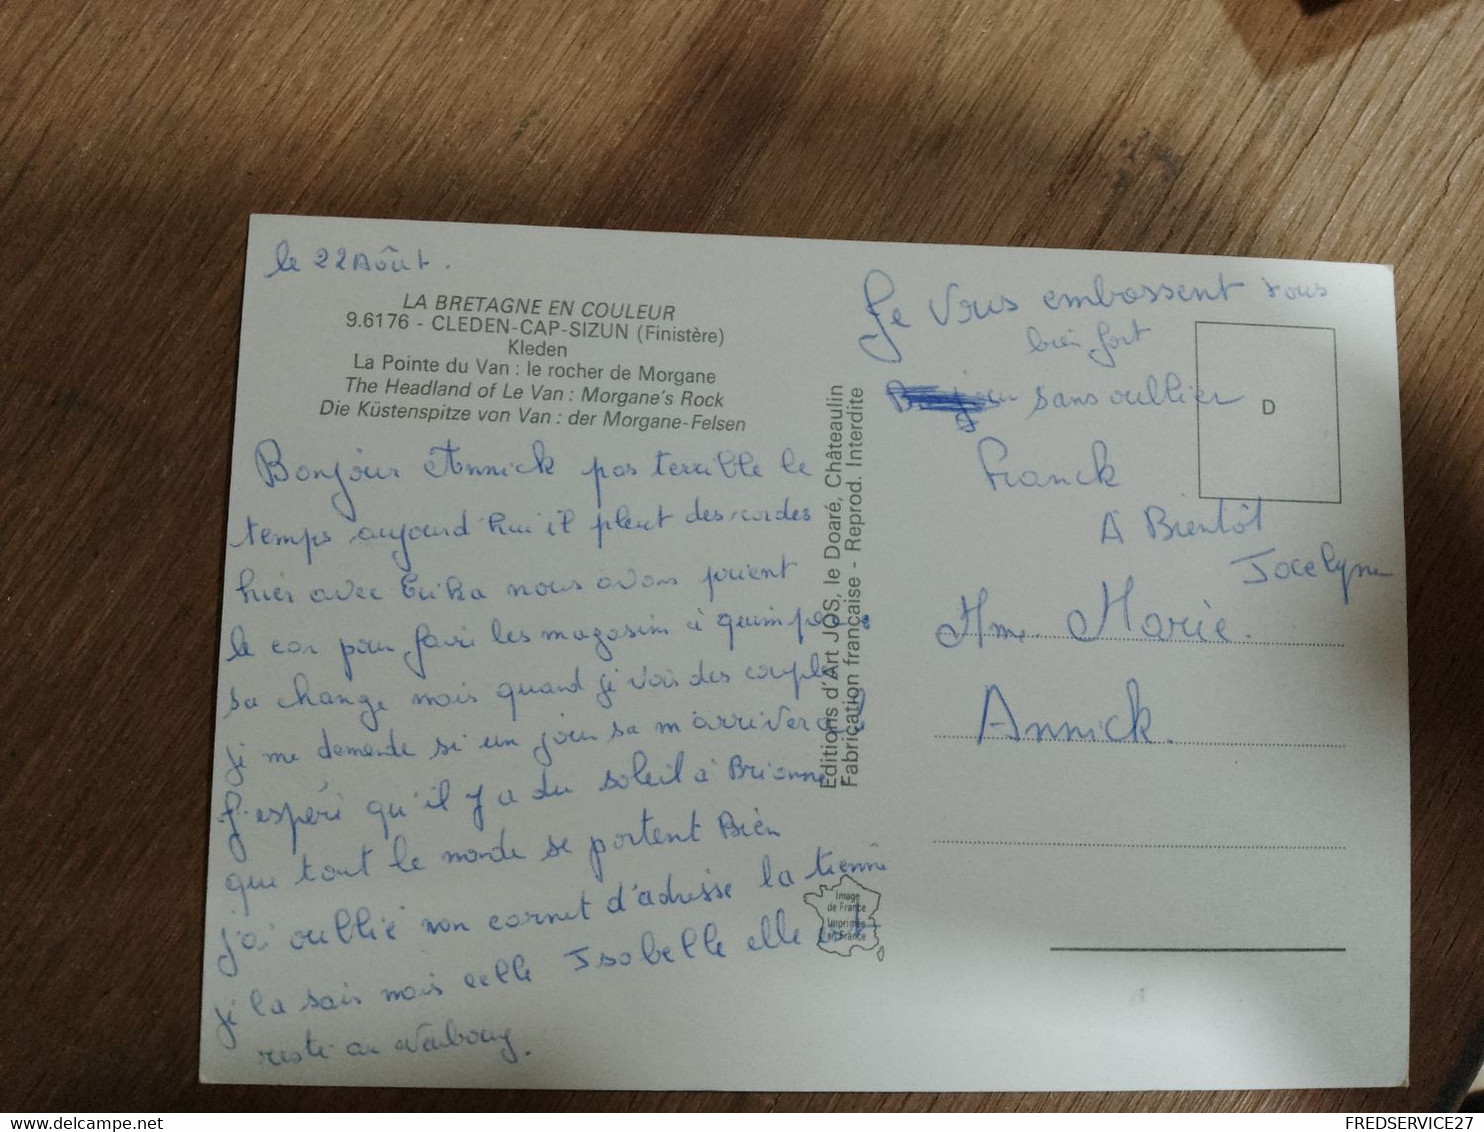 le 22 Août.
LA BRETAGNE EN COULEUR
9.6176 - CLEDEN-CAP-SIZUN (Finistère)
Kleden
La Pointe du Van : le rocher de Morgane
The Headland of Le Van : Morgane's Rock
Die Küstenspitze von Van : der Morgane-Felsen
Bonjour Annick pas terrible le
temps aujourd'hui il pleut des cordes
hier avec Erika nous avons prient
le car pour faire les magasin à quimper.
sa change mais quand je vois des couples
je me demande si un jour sa m'arrivera?
J'espère qu'il y a du soleil à Brionne
que tout le monde se portent Bien
j'ai oublié mon carnet d'adresse la tienne
je la sais mais celle Isabelle elle est
resté au
Editions d'Art JOS, le Doaré, Châteaulin
Fabrication française - Reprod. Interdite
Image
de France
Imprimée
en France
Je vous embrassent tous
bien fort
sans oublier
Franck
D
A Bientôt
Jocelyne
Mme Marie.
Annick.
FREDSERVICE27